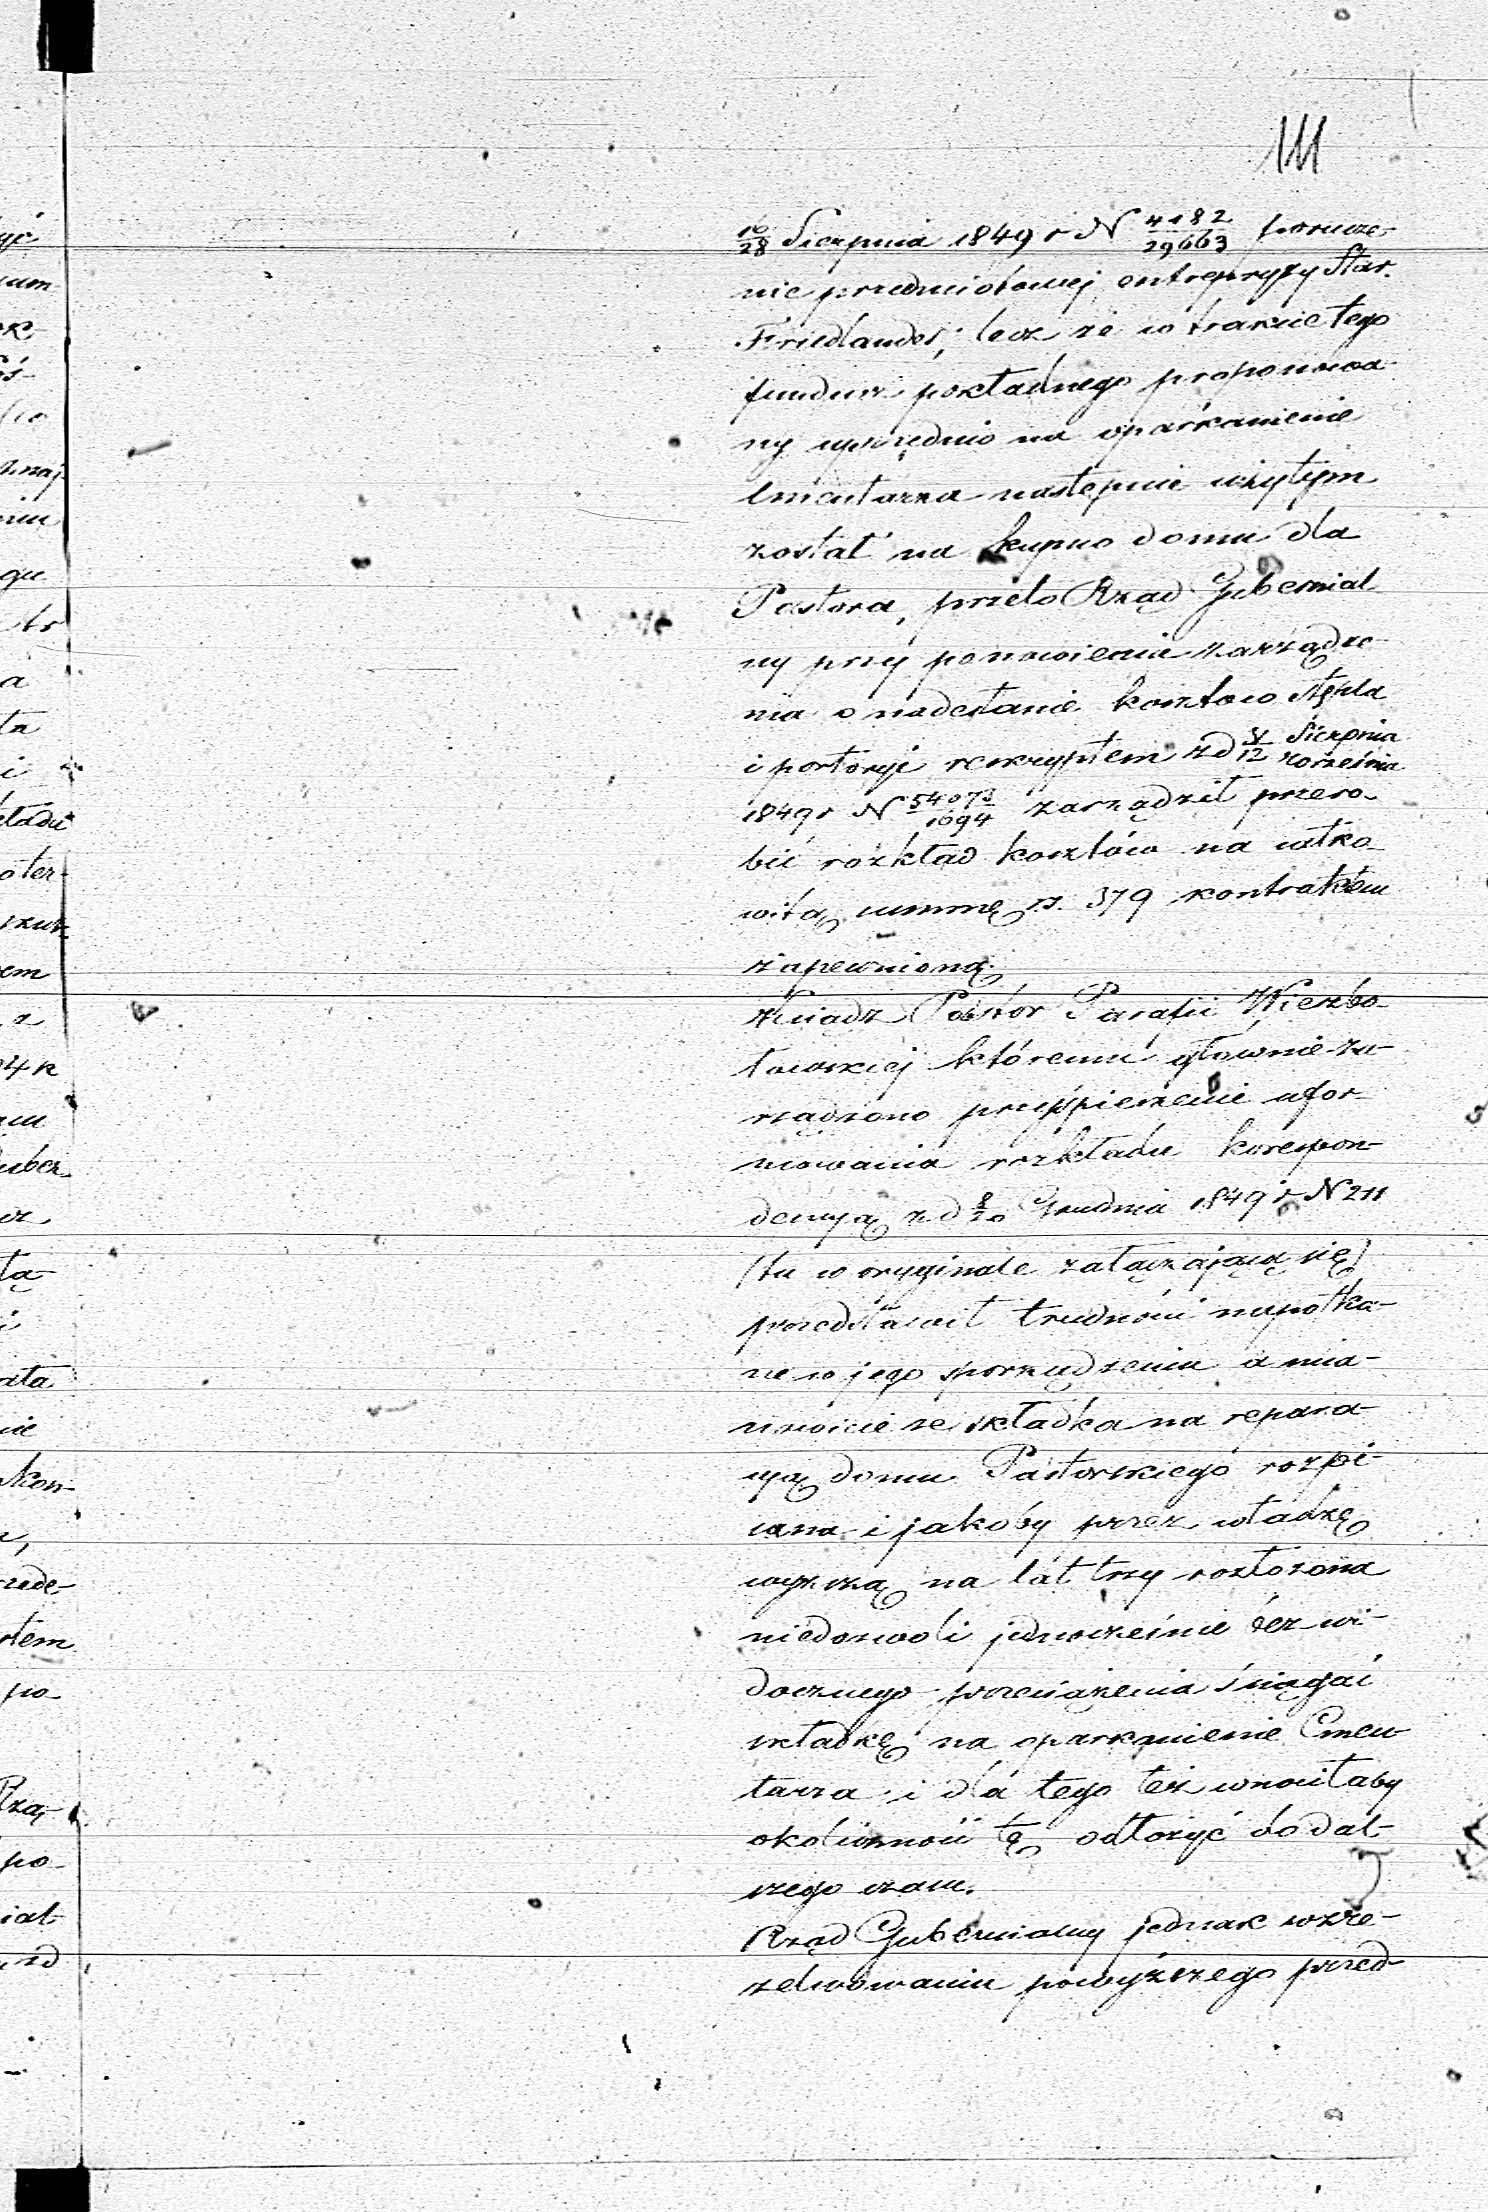 111
16/28 Sierpnia 1849 r N 4182/29663 porucze-
nie przedmiotowej entrepryzy Star.
Friedlander; lecz że w trakcie tego
fundusz pokładnego proponowa-
ny uprzednio na oparkanienie
Cmentarza następnie użytym
został na kupno domu dla
Pastora, przeto Rząd Gubernial-
ny przy ponowieniu zarządze-
nia o nadesłanie kosztów stępla
i portorji reskryptem z d 31/12 Sierpnia/Września
1849 r N 54073/1694 zarządził przero-
bić rozkład kosztów na całko-
witą summę rs. 379 kontraktem
zapewnioną.
Xsiądz Pastor Parafii Wierzbo-
łowskiej któremu głównie za-
rządzono przyśpieszenie ufor-
mowania rozkładu korespon-
dencyą z d 8/20 Grudnia 1849 r N 211
(tu w oryginale załączającą się)
przedstawił trudności napotka-
ne w jego sporządzeniu a mia-
nowicie że składka na repara-
cyą domu Pastorskiego rozpi-
sana i jakoby przez władzę
wyższą na lat trzy rozłożona
niedozwoli jednocześnie bez wi-
docznego przeciążenia ściągać
składkę na oparkanienie Cmen-
tarza i dla tego też wnosiłaby
okoliczność tę odłożyć do dal-
szego czasu.
Rząd Gubernialny jednak w zre-
zelwowaniu powyższego przed-